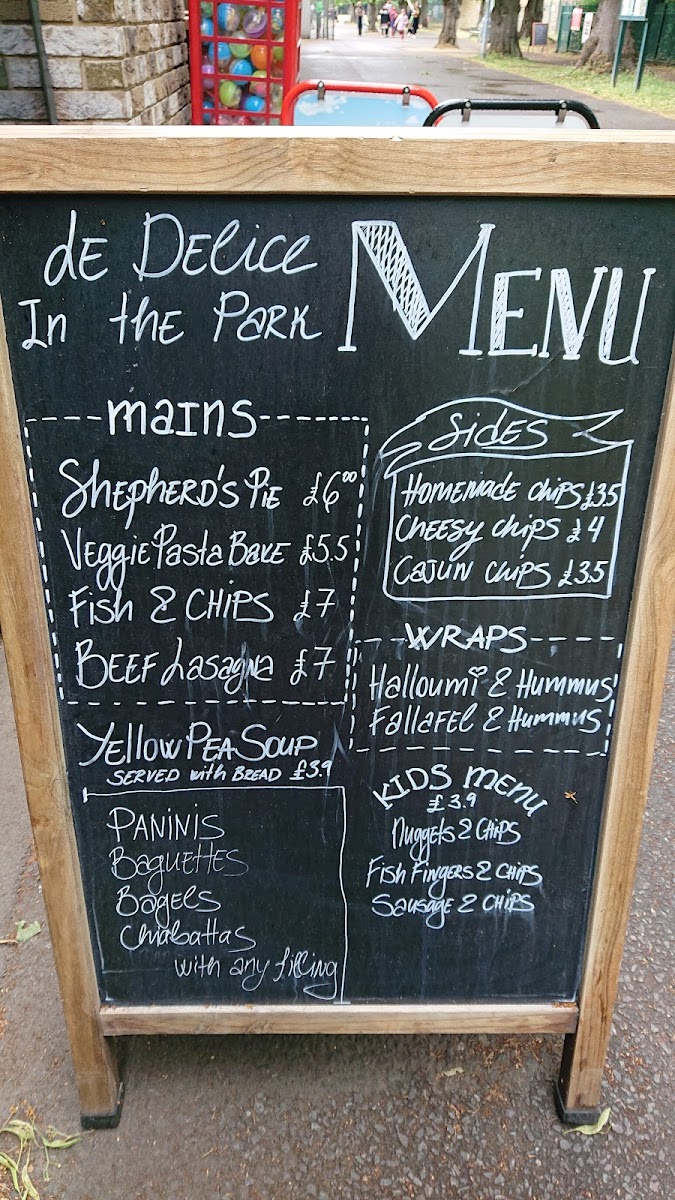 de Delice
In the Park
Menu
mains
Shepherd's Pie £6⁰⁰
Veggie Pasta Bake £5.5
Fish & CHIPS £7
Beef Lasagna £7
Yellow Pea Soup
SERVED with BREAD £3.9
PANINIS
Baguettes
Bagels
Chiabattas
with any filling
Sides
Homemade chips £3.5
Cheesy chips £4
Cajun chips £3.5
WRAPS
Halloumi & Hummus
Fallafel & Hummus
KIDS MENU
£3.9
Nuggets & Chips
Fish Fingers & Chips
Sausage & Chips